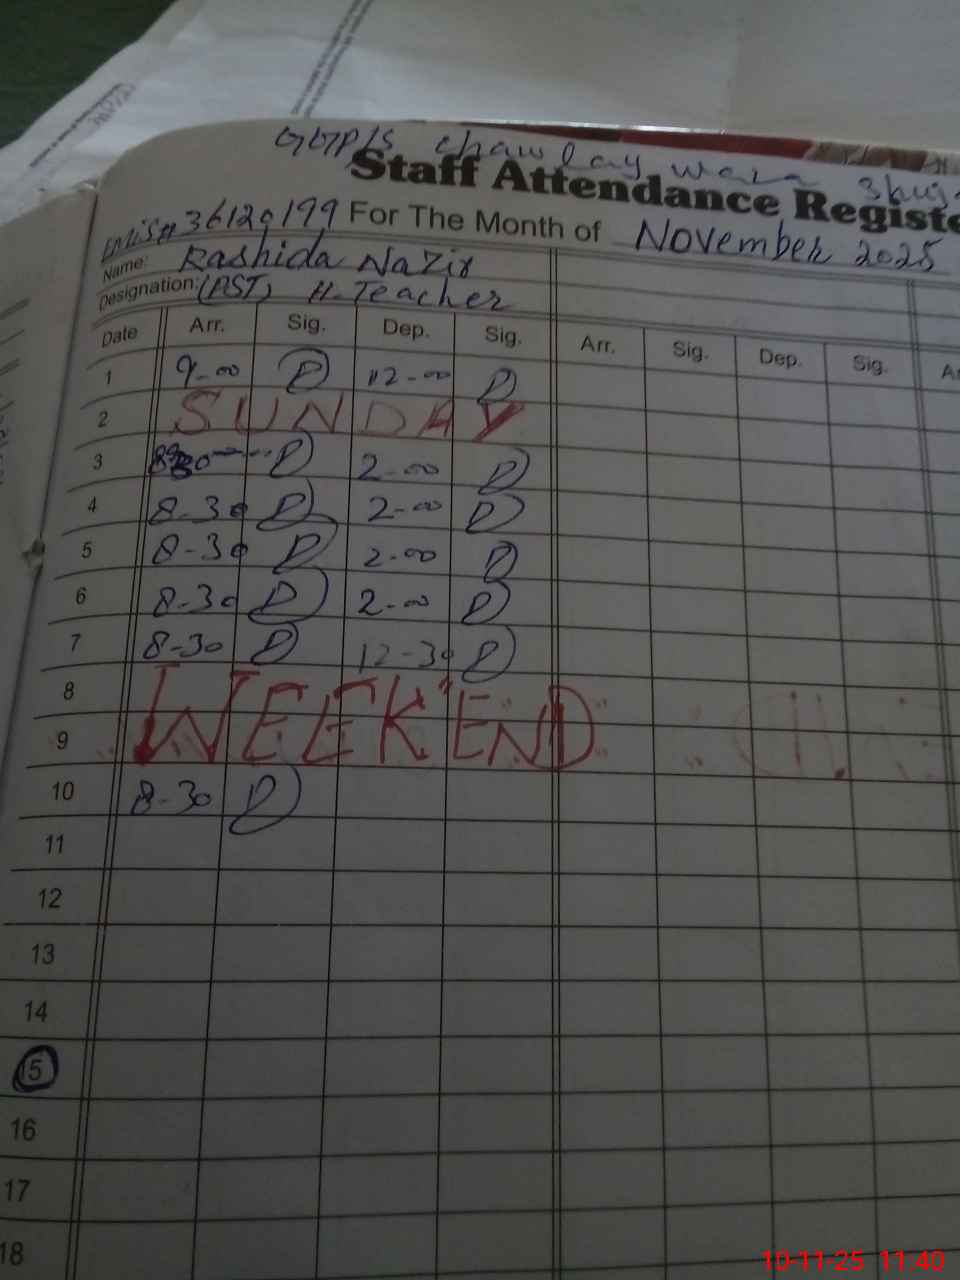 GGPS chawlay wala Shuj
Staff Attendance Registe
EMIS# 36120199 For The Month of November 2025
Name: Rashida Nazir
Designation: (PST) H-Teacher
Date Arr. Sig. Dep. Sig. Arr. Sig. Dep. Sig.
1 9-00 12-00
2 SUNDAY
3 2-00
4 8-30 2-00
5 8-30 2-00
6 8-30 2-00
7 8-30 12-30
8
9 WEEK"END
10 8-30
11
12
13
14
15
16
17
18
10-11-25 11:40